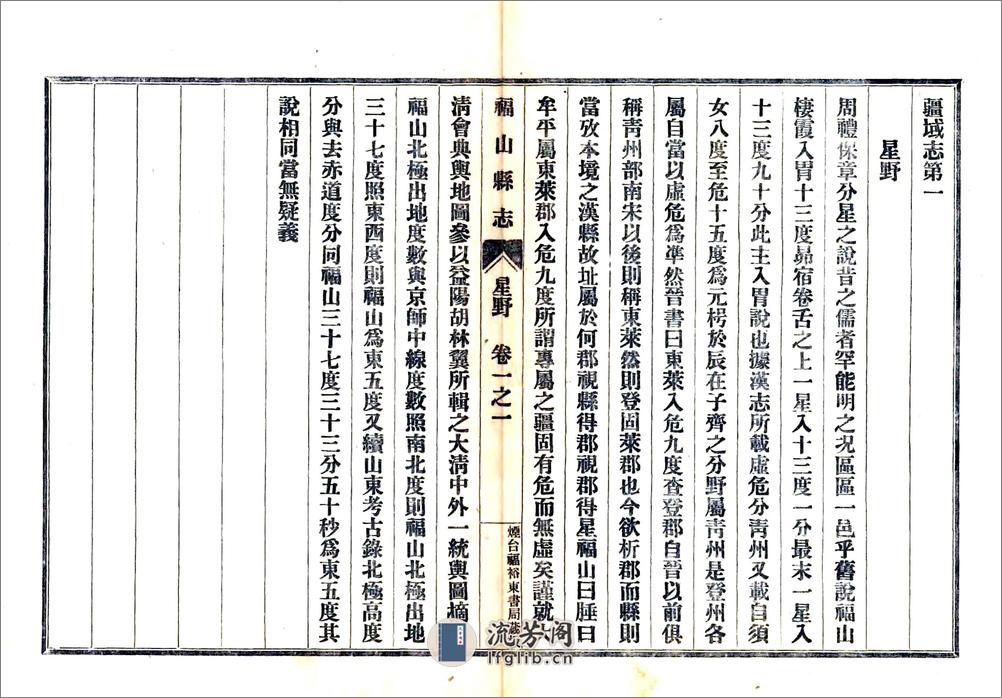 疆域志第一
星野
周禮保章分星之說昔之儒者罕能明之况區區一邑乎舊說福山
棲霞入胃十三度昴宿卷舌之上一星入十三度一分最末一星入
十三度九十分此主入胃說也據漢志所載虛危分靑州又載自須
女八度至危十五度爲元枵於辰在子齊之分野屬靑州是登州各
屬自當以虛危爲準然晉書曰東萊入危九度查登郡自晉以前俱
稱靑州部南宋以後則稱東萊然則登固萊郡也今欲析郡而縣則
當攷本境之漢縣故址屬於何郡視縣得郡視郡得星福山曰腄曰
牟平屬東萊郡入危九度所謂專屬之疆固有危而無虛矣謹就
福山縣志 星野 卷一之一
煙台福裕東書局
淸會典輿地圖參以益陽胡林翼所輯之大淸中外一統輿圖摘
福山北極出地度數與京師中線度數照南北度則福山北極出地
三十七度照東西度則福山爲東五度又續山東考古錄北極高度
分與去赤道度分同福山三十七度三十三分五十秒爲東五度其
說相同當無疑義
流芳阁
lfglib.cn